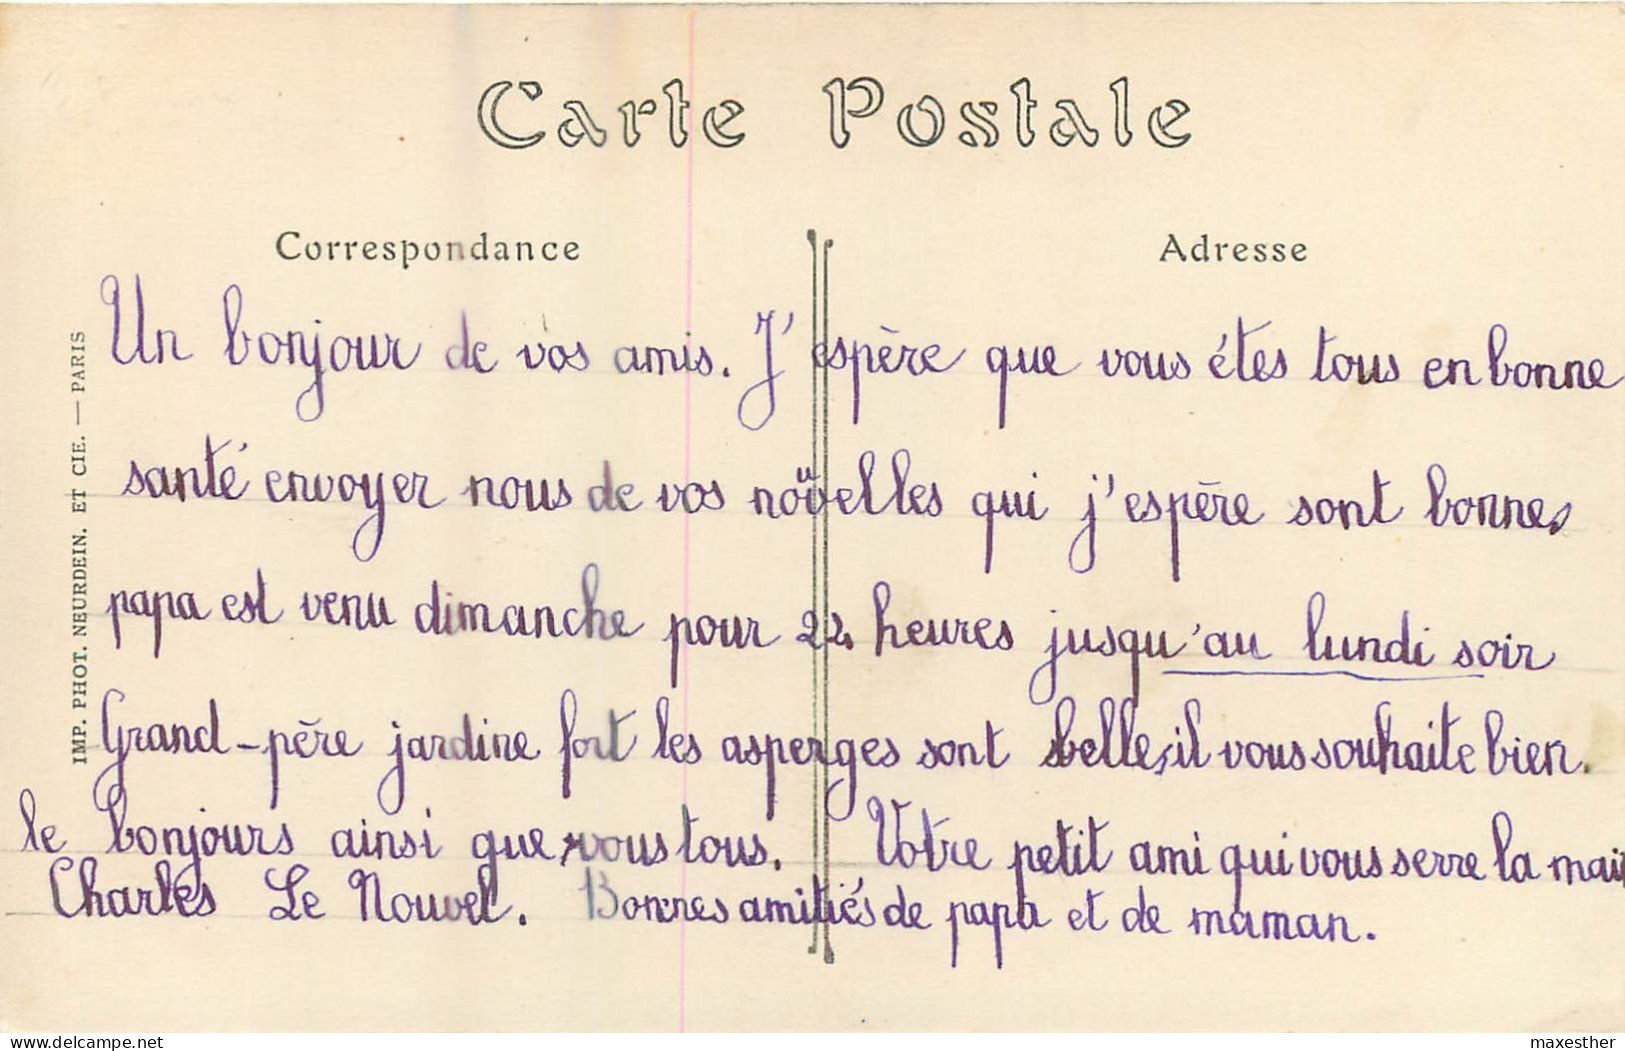 Carte Postale
Correspondance
Adresse
IMP. PHOT. NEURDEIN. ET CIE. — PARIS
Un bonjour de vos amis. J'espère que vous étes tous en bonne
santé envoyer nous de vos noüvelles qui j'espère sont bonnes
papa est venu dimanche pour 24 heures jusqu'au lundi soir
Grand-père jardine fort les asperges sont belle, il vous souhaite bien
le bonjours ainsi que vous tous. Votre petit ami qui vous serre la main
Charles Le Nouvel. Bonnes amitiés de papa et de maman.
www.delcampe.net
maxesther